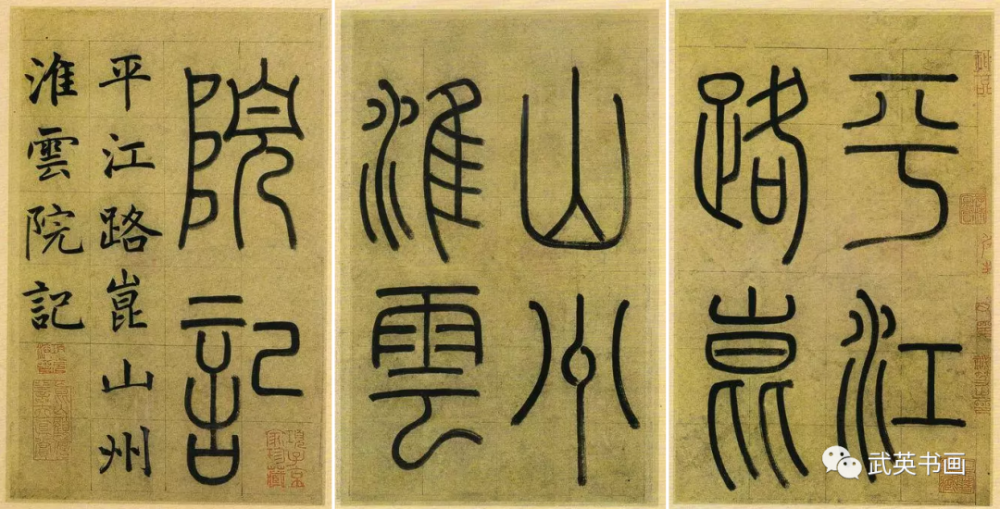 平江
路崑
山州
淮雲
院記
平江路崑山州
淮雲院記
項子京
家珍藏
武英书画